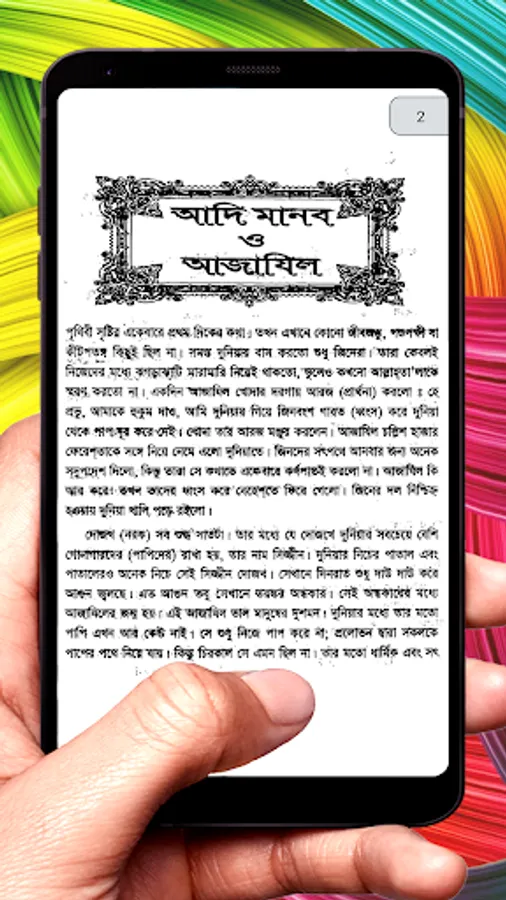 2
আদি মানব
ও
আজাযিল
পৃথিবী সৃষ্টির একেবারে প্রথম দিকের কথা। তখন এখানে কোনো জীবজন্তু, পশুপক্ষী বা
কীটপতঙ্গ কিছুই ছিল না। সমস্ত দুনিয়ায় বাস করতো শুধু জিনেরা। তারা কেবলই
নিজেদের মধ্যে ঝগড়াঝাটি মারামারি নিয়েই থাকতো, ভুলেও কখনো আল্লাহতা'লাকে
স্মরণ করতো না। একদিন আজাযিল খোদার দরগায় আরজ (প্রার্থনা) করলো ঃ হে
প্রভু, আমাকে হুকুম দাও, আমি দুনিয়ায় গিয়ে জিনবংশ গারত (ধ্বংস) করে দুনিয়া
থেকে পাপ দূর করে দেই। খোদা তার আরজ মঞ্জুর করলেন। আজাযিল চল্লিশ হাজার
ফেরেশ্‌তাকে সঙ্গে নিয়ে নেমে এলো দুনিয়াতে। জিনদের সৎপথে আনবার জন্য অনেক
সদুপদেশ দিলো, কিন্তু তারা সে কথাতে একেবারে কর্ণপাতই করলো না। আজাযিল কি
আর করে! তখন তাদের ধ্বংস করে বেহেশ্‌তে ফিরে গেলো। জিনের দল নিশ্চিহ্ন
হওয়ায় দুনিয়া খালি পড়ে রইলো।
দোজখ (নরক) সব শুদ্ধ সাতটা। তার মধ্যে যে দোজখে দুনিয়ার সবচেয়ে বেশি
গোনাগারদের (পাপিদের) রাখা হয়, তার নাম সিজ্জীন। দুনিয়ার নিচের পাতাল এবং
পাতালেরও অনেক নিচে সেই সিজ্জীন দোজখ। সেখানে দিনরাত শুধু দাউ দাউ করে
আগুন জ্বলছে। এত আগুন তবু সেখানে ভয়ঙ্কর অন্ধকার। সেই অন্ধকারের মধ্যে
আজাযিলের জন্ম হয়। এই আজাযিল তাল মানুষের দুশমন। দুনিয়ার মধ্যে তার মতো
পাপি এখন আর কেউ নাই। সে শুধু নিজে পাপ করে না; প্রলোভন দ্বারা সকলকে
পাপের পথে নিয়ে যায়। কিন্তু চিরকাল সে এমন ছিল না। তার মতো ধার্মিক এবং সৎ